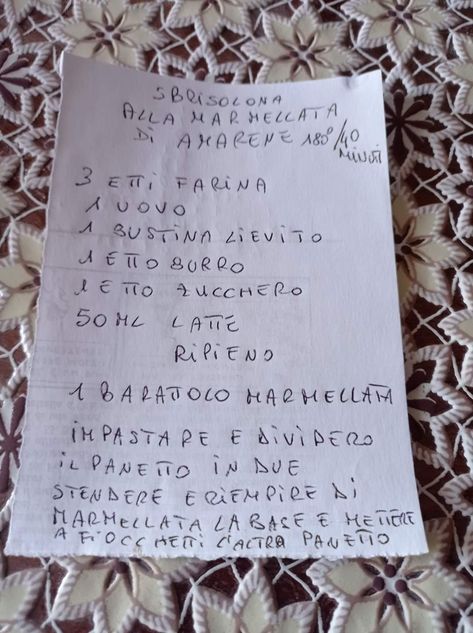 SBRISOLONA
ALLA MARMELLATA
DI AMARENE 180°/40
MINUTI
3 ETTI FARINA
1 UOVO
1 BUSTINA LIEVITO
1 ETTO BURRO
1 ETTO ZUCCHERO
50 ML LATTE
RIPIENO
1 BARATTOLO MARMELLATA
IMPASTARE E DIVIDERO
IL PANETTO IN DUE
STENDERE E RIEMPIRE DI
MARMELLATA LA BASE E METTERE
A FIOCCHETTI L'ALTRO PANETTO